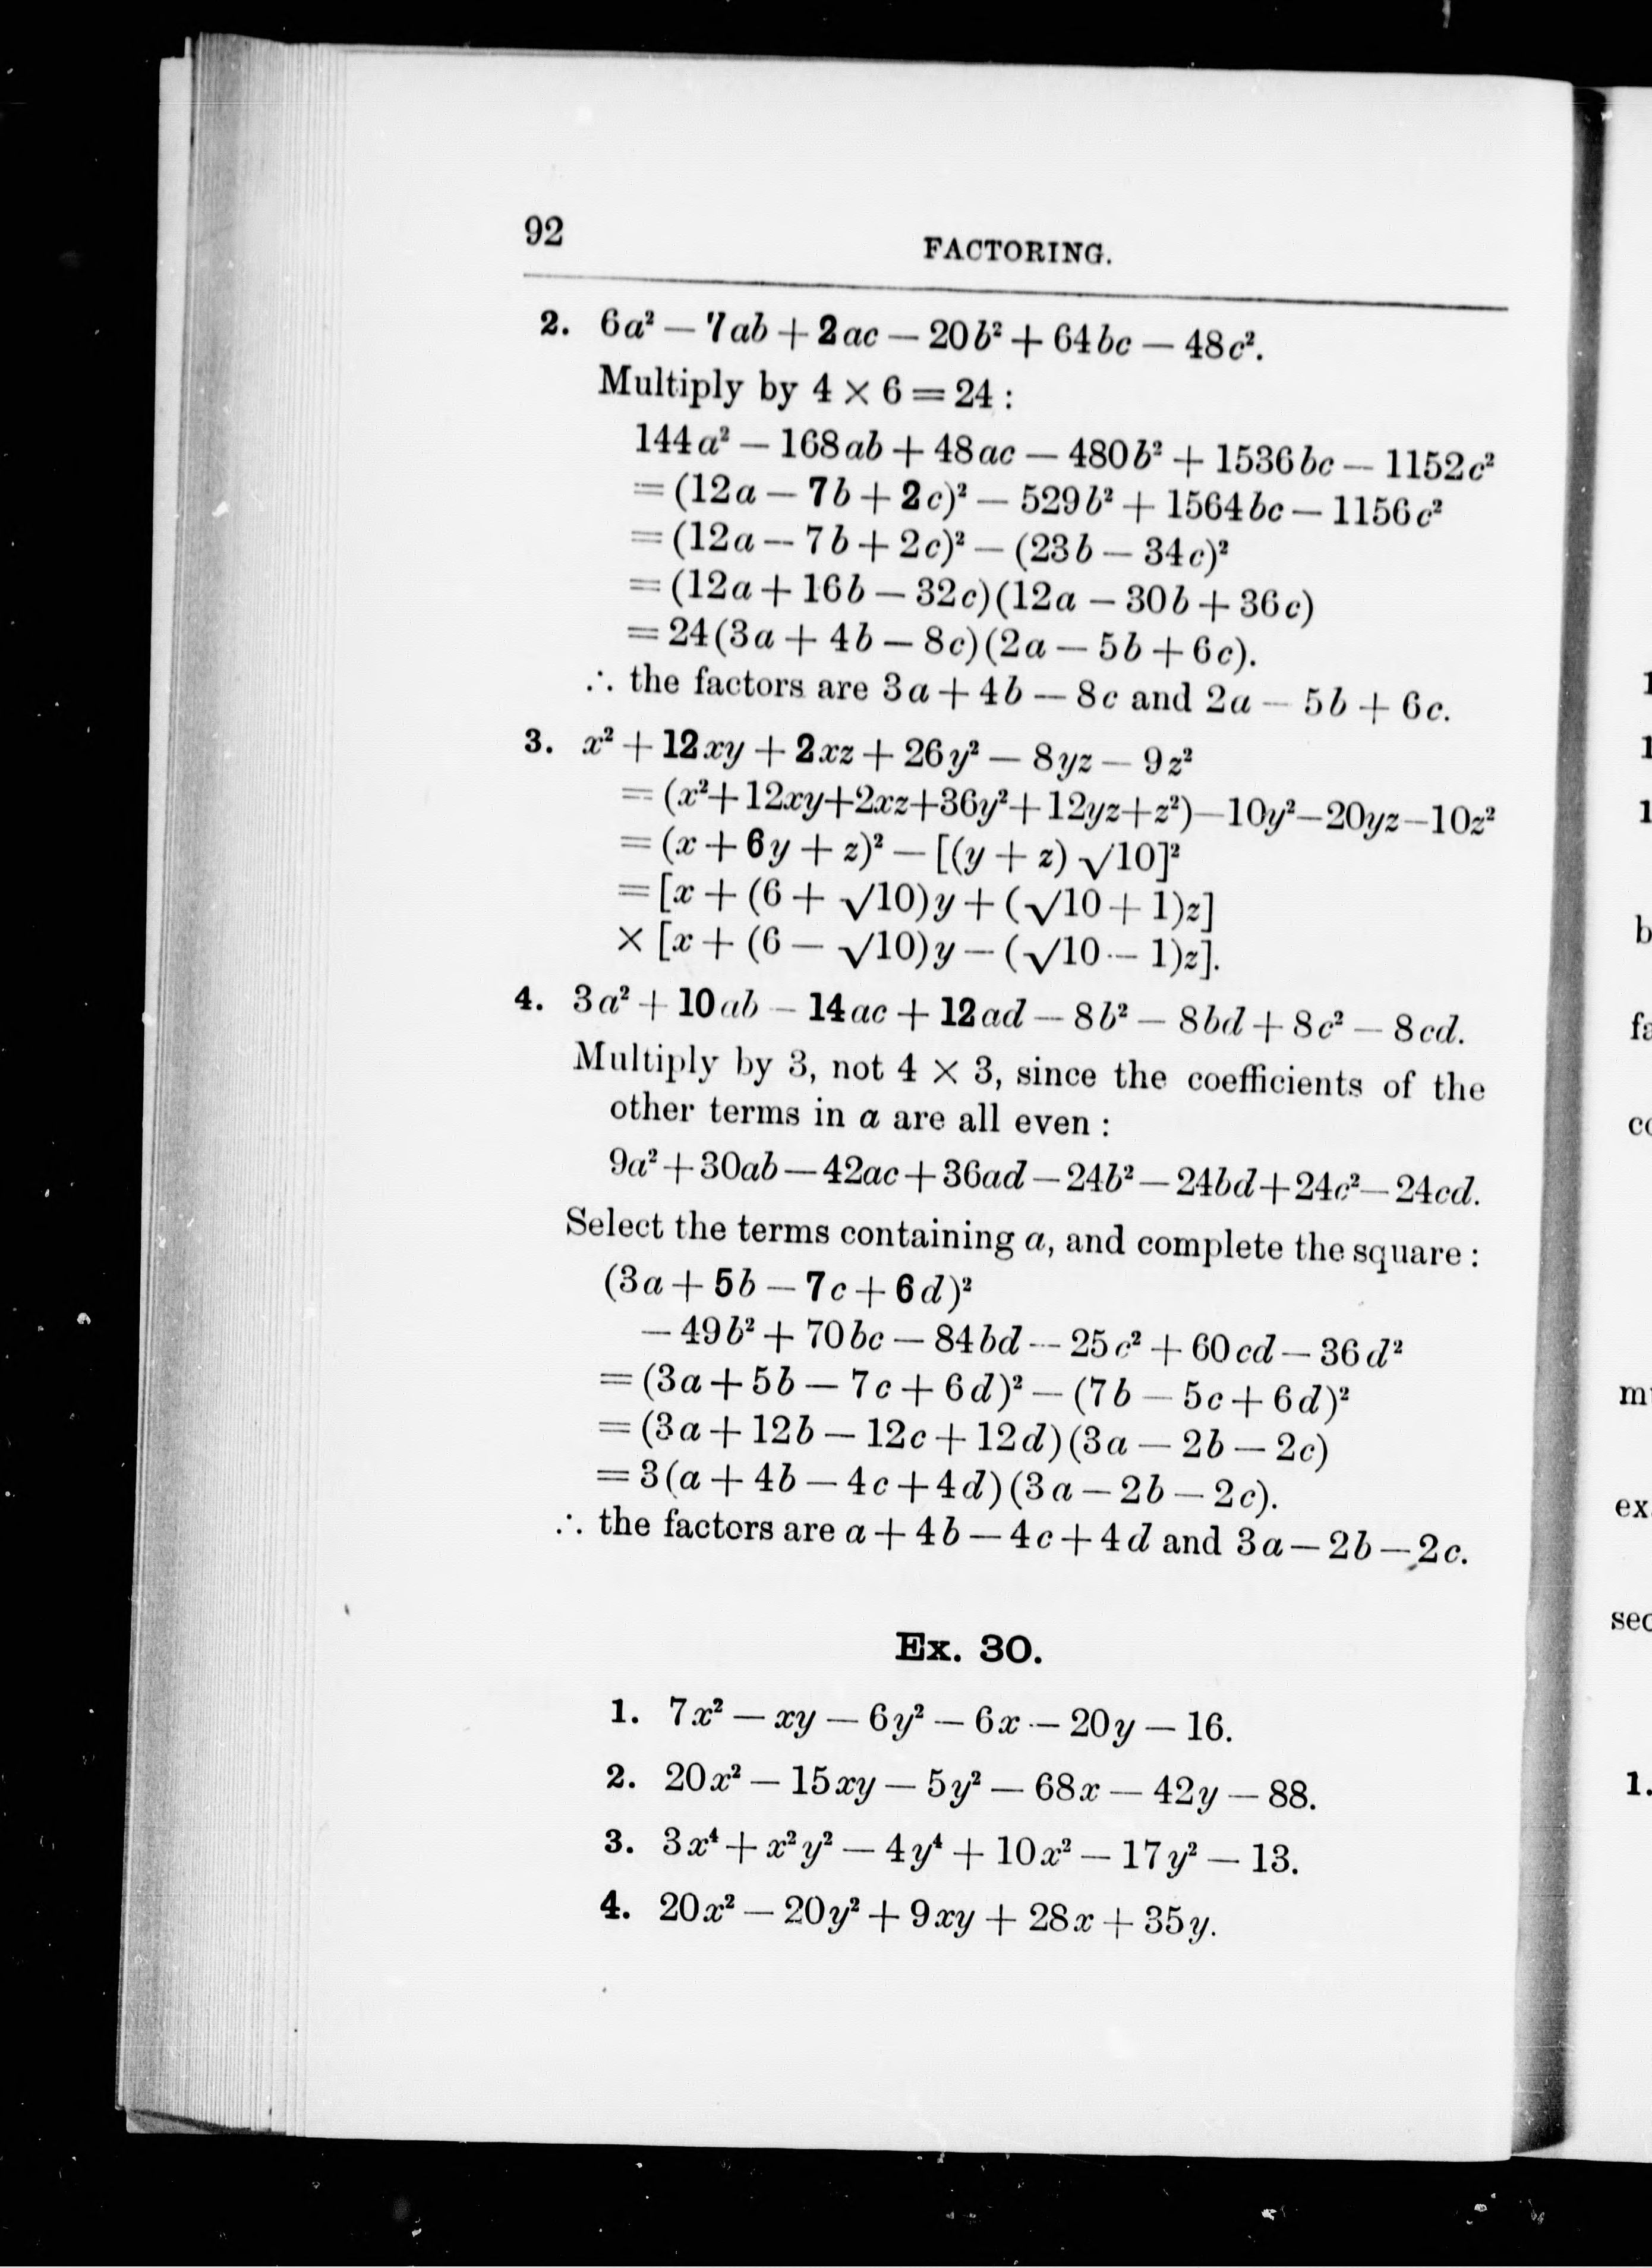 92
FACTORING.
2. 6a² — 7ab + 2ac — 20b² + 64bc — 48c².
Multiply by 4 × 6 = 24 :
144a² — 168ab + 48ac — 480b² + 1536bc — 1152c²
= (12a — 7b + 2c)² — 529b² + 1564bc — 1156c²
= (12a — 7b + 2c)² — (23b — 34c)²
= (12a + 16b — 32c)(12a — 30b + 36c)
= 24(3a + 4b — 8c)(2a — 5b + 6c).
∴ the factors are 3a + 4b — 8c and 2a — 5b + 6c.
3. x² + 12xy + 2xz + 26y² — 8yz — 9z²
= (x²+12xy+2xz+36y²+12yz+z²)—10y²—20yz—10z²
= (x + 6y + z)² — [(y + z) √10]²
= [x + (6 + √10)y + (√10 + 1)z]
× [x + (6 — √10)y — (√10 — 1)z].
4. 3a² + 10ab — 14ac + 12ad — 8b² — 8bd + 8c² — 8cd.
Multiply by 3, not 4 × 3, since the coefficients of the
other terms in a are all even :
9a² + 30ab — 42ac + 36ad — 24b² — 24bd + 24c² — 24cd.
Select the terms containing a, and complete the square :
(3a + 5b — 7c + 6d)²
— 49b² + 70bc — 84bd — 25c² + 60cd — 36d²
= (3a + 5b — 7c + 6d)² — (7b — 5c + 6d)²
= (3a + 12b — 12c + 12d)(3a — 2b — 2c)
= 3(a + 4b — 4c + 4d)(3a — 2b — 2c).
∴ the factors are a + 4b — 4c + 4d and 3a — 2b — 2c.
Ex. 30.
1. 7x² — xy — 6y² — 6x — 20y — 16.
2. 20x² — 15xy — 5y² — 68x — 42y — 88.
3. 3x⁴ + x²y² — 4y⁴ + 10x² — 17y² — 13.
4. 20x² — 20y² + 9xy + 28x + 35y.